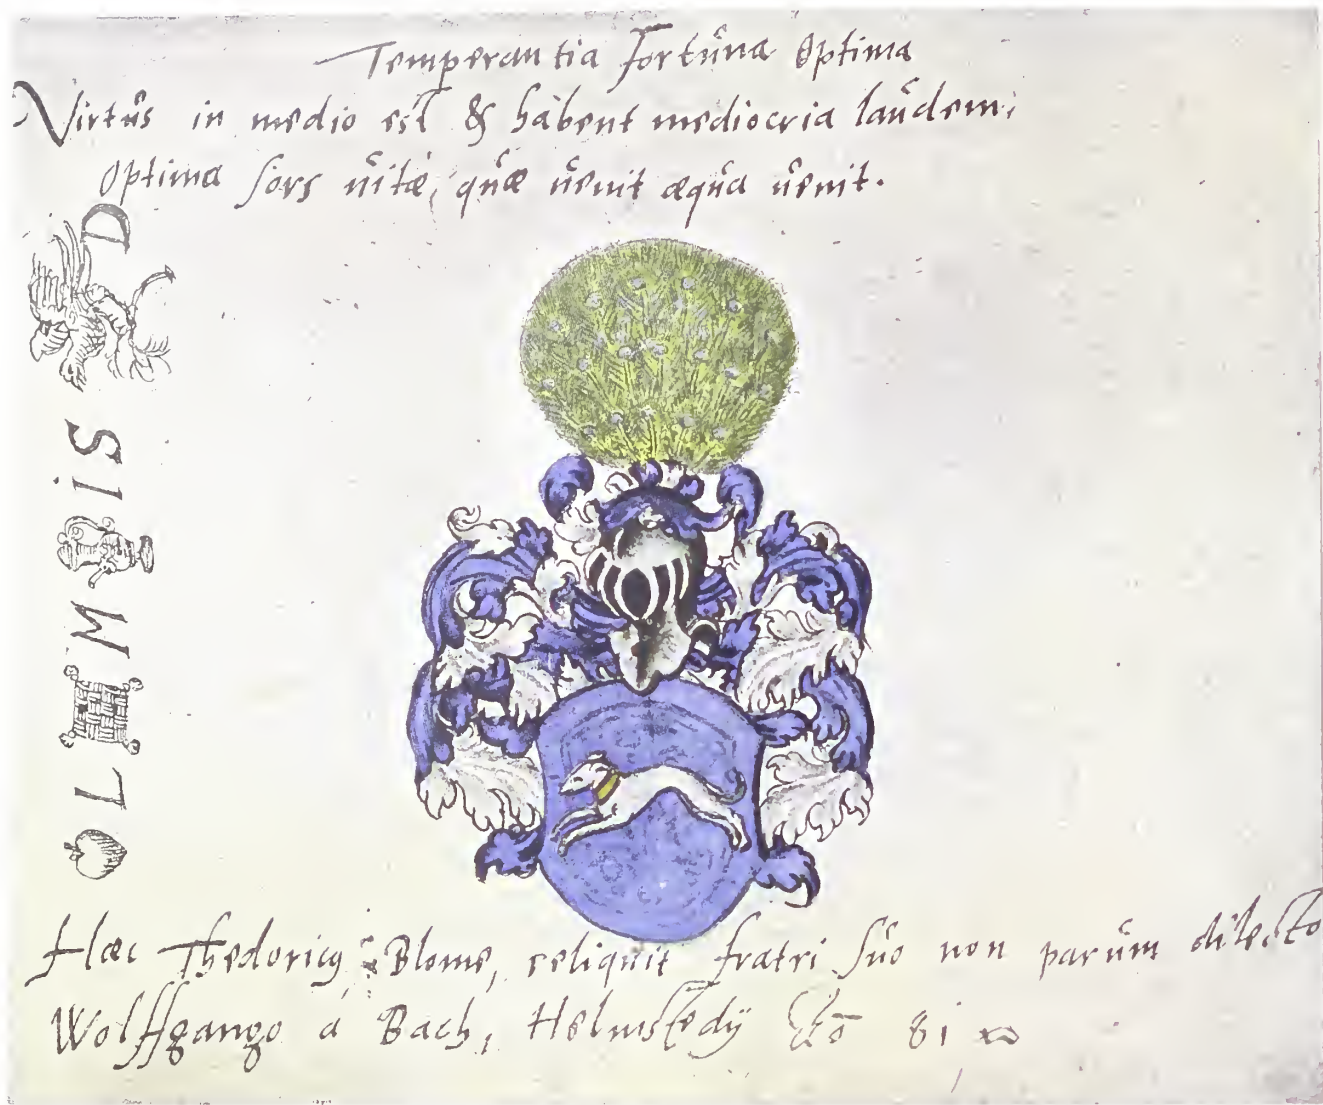 Temperantia Fortŭna Optima
Virtŭs in medio est & habent mediocria laŭdem;
Optima sors ŭitæ, qŭæ ŭenit æqŭa ŭenit.
D
S I
M
L
Hæc Thedoricꝰ à Blome, reliquit fratri sŭo non parŭm dilecto
Wolffgango à Bach, Helmstedÿ 81